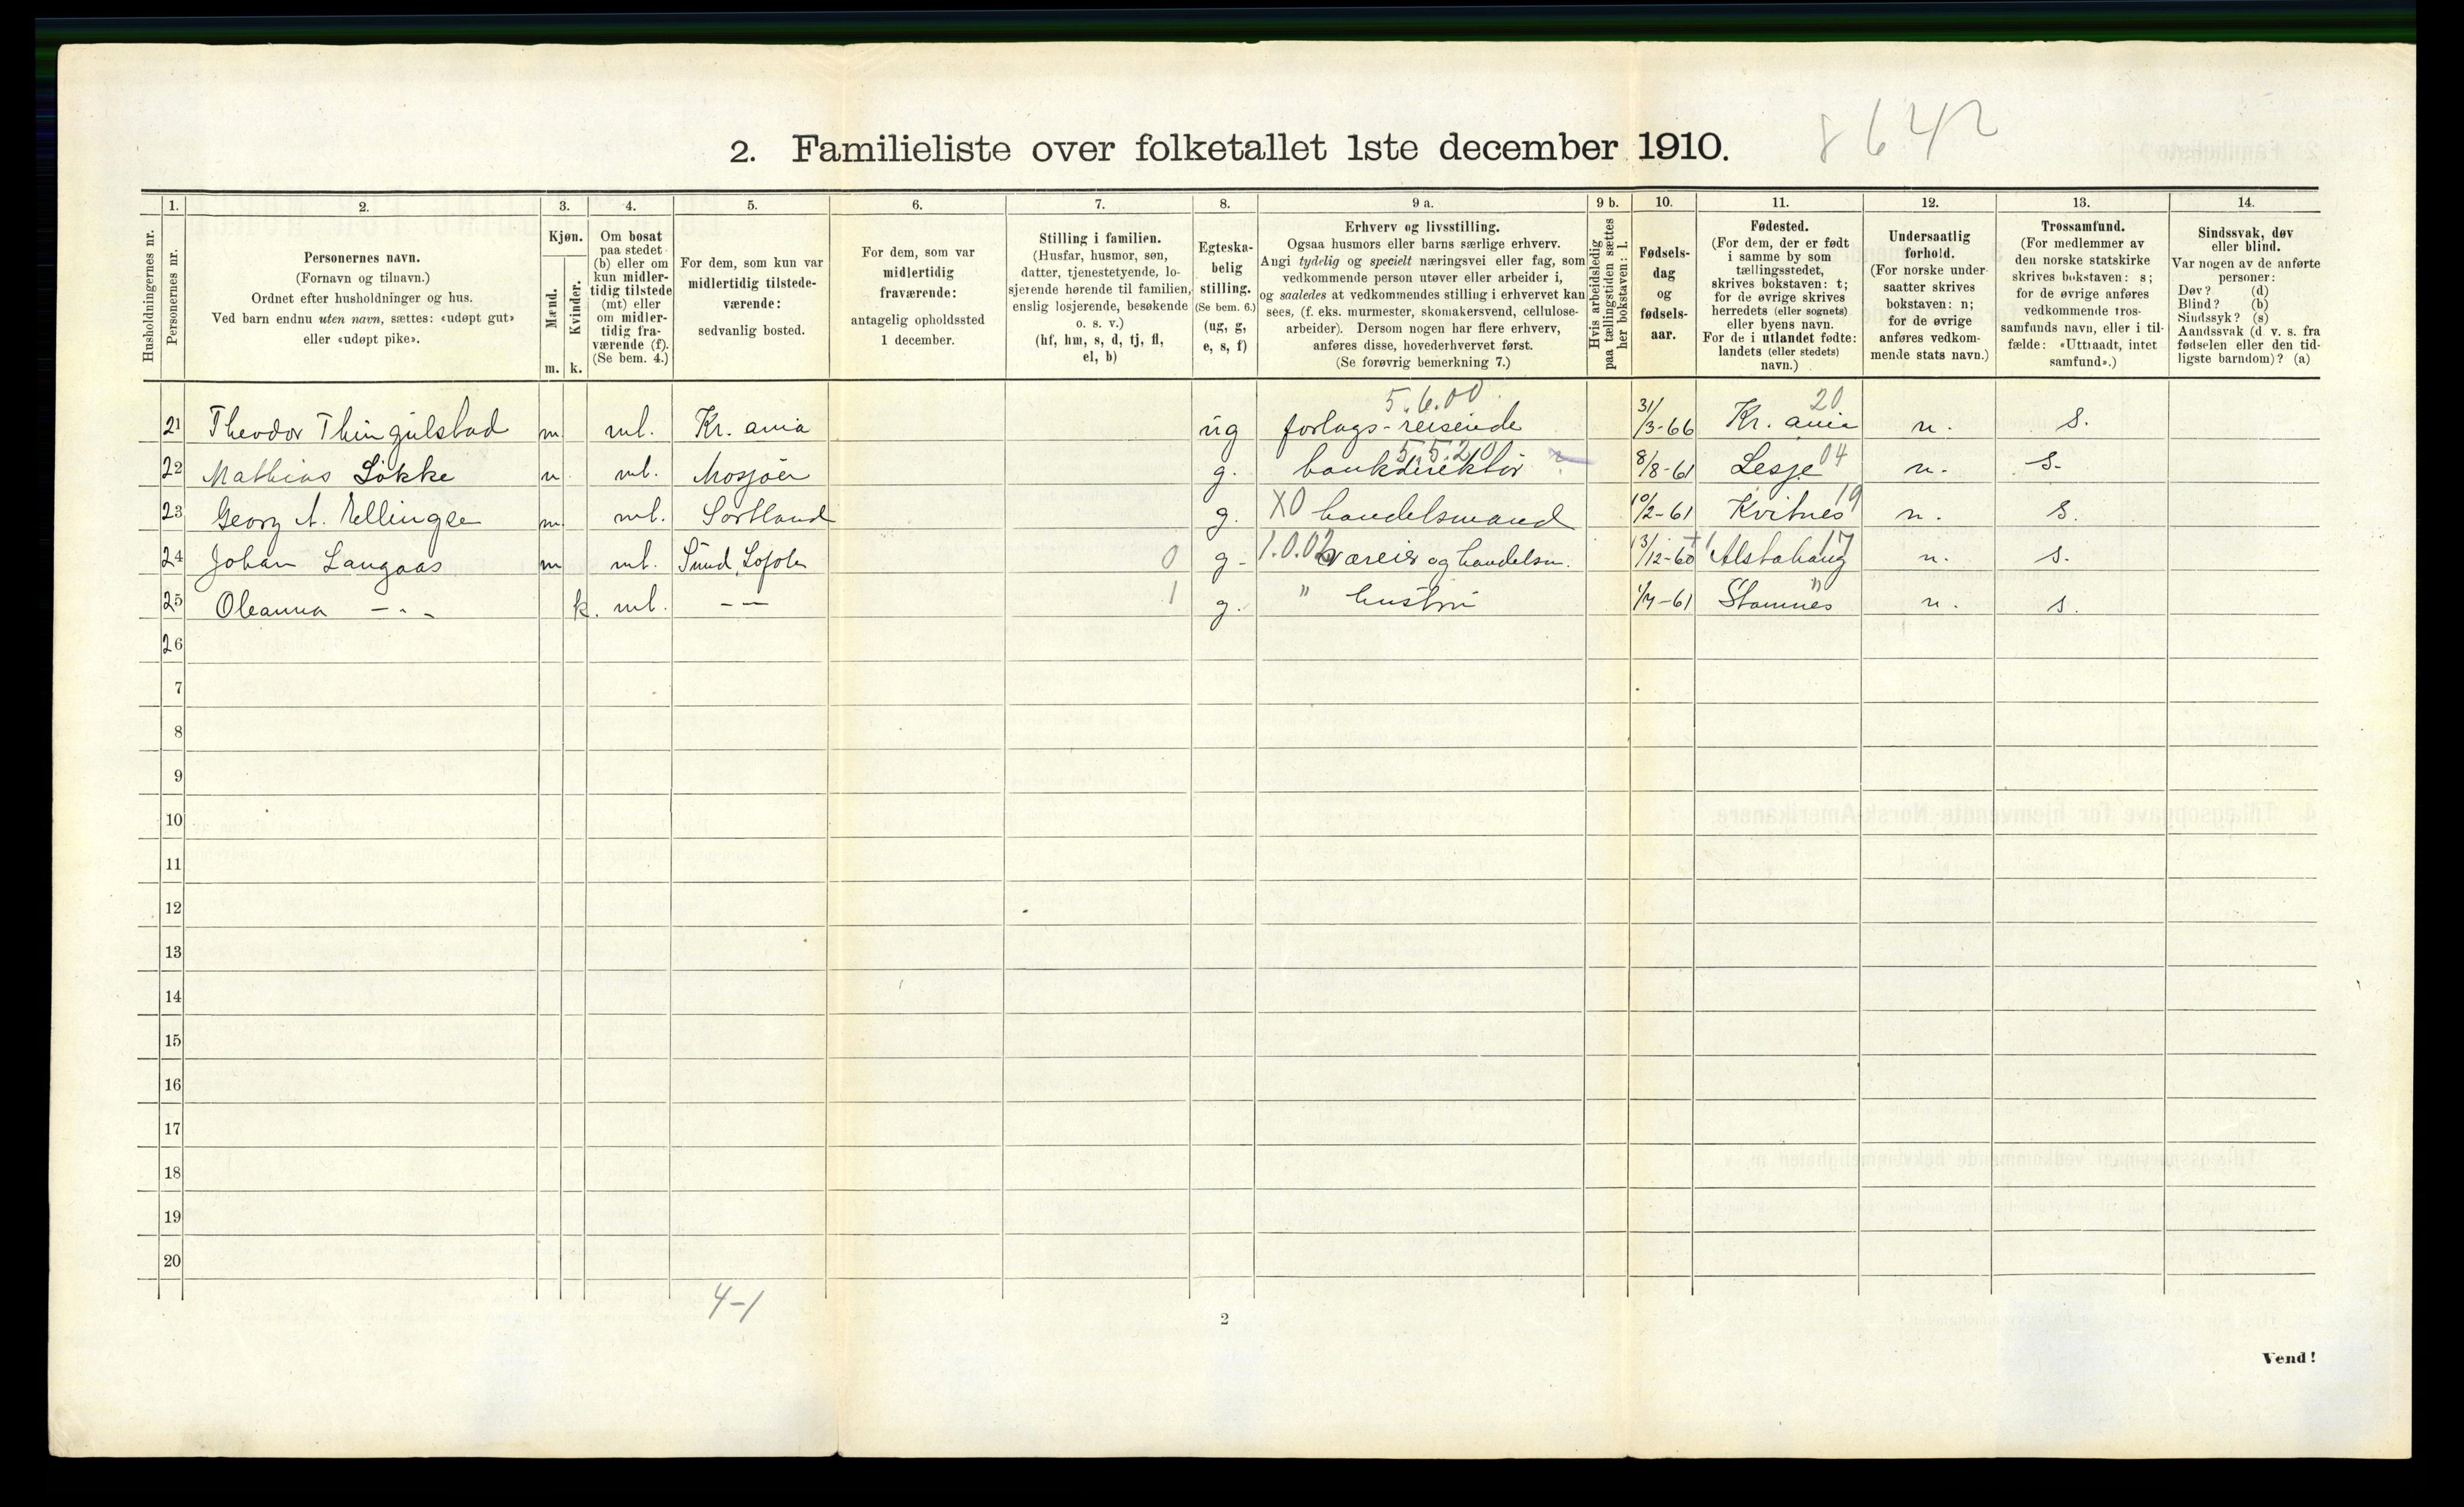 8642
2. Familieliste over folketallet 1ste december 1910.
Husholdningernes nr.
1. Personernes nr.
2. Personernes navn. (Fornavn og tilnavn.) Ordnet efter husholdninger og hus. Ved barn endnu uten navn, sættes: «udøpt gut» eller «udøpt pike».
3. Kjøn. Mænd. m. Kvinder. k.
4. Om bosat paa stedet (b) eller om kun midlertidig tilstede (mt) eller om midlertidig fraværende (f). (Se bem. 4.)
5. For dem, som kun var midlertidig tilstedeværende: sedvanlig bosted.
6. For dem, som var midlertidig fraværende: antagelig opholdssted 1 december.
7. Stilling i familien. (Husfar, husmor, søn, datter, tjenestetyende, losjerende hørende til familien, enslig losjerende, besøkende o. s. v.) (hf, hm, s, d, tj, fl, el, b)
8. Egteskabelig stilling. (Se bem. 6.) (ug, g, e, s, f)
9 a. Erhverv og livsstilling. Ogsaa husmors eller barns særlige erhverv. Angi tydelig og specielt næringsvei eller fag, som vedkommende person utøver eller arbeider i, og saaledes at vedkommendes stilling i erhvervet kan sees, (f. eks. murmester, skomakersvend, cellulosearbeider). Dersom nogen har flere erhverv, anføres disse, hovederhvervet først. (Se forøvrig bemerkning 7.)
9 b. Hvis arbeidsledig paa tællingstiden sættes her bokstaven: l.
10. Fødselsdag og fødselsaar.
11. Fødested. (For dem, der er født i samme by som tællingsstedet, skrives bokstaven: t; for de øvrige skrives herredets (eller sognets) eller byens navn. For de i utlandet fødte: landets (eller stedets) navn.)
12. Undersaatlig forhold. (For norske undersaatter skrives bokstaven: n; for de øvrige anføres vedkommende stats navn.)
13. Trossamfund. (For medlemmer av den norske statskirke skrives bokstaven: s; for de øvrige anføres vedkommende trossamfunds navn, eller i tilfælde: «Uttraadt, intet samfund».)
14. Sindssvak, døv eller blind. Var nogen av de anførte personer: Døv? (d) Blind? (b) Sindssyk? (s) Aandssvak (d. v. s. fra fødselen eller den tidligste barndom)? (a)
5.6.00 20
21 Theodor Thingulstad m mt. Kr. ania ug forlags-reisende 31/3-66 Kr. ania n. s.
5.5.20 04
22 Mathias Løkke m mt. Mosjøen g. bankdirektør 8/8-61 Lesje n. s.
23 Georg A. Ellingse m mt. Sortland g. X0 handelsmand 10/2-61 Kvitnes 19 n. s.
24 Johan Langaas m mt. Sund, Lofoten 0 g. 1.0.02 væreier og handelsm. 13/12-60 Alstahaug 17 n. s.
25 Oleanna -"- k. mt. -- 1 g. " hustru 1/7-61 Stamnes " n. s.
26
7
8
9
10
11
12
13
14
15
16
17
18
19
20
4-1
2
Vend!